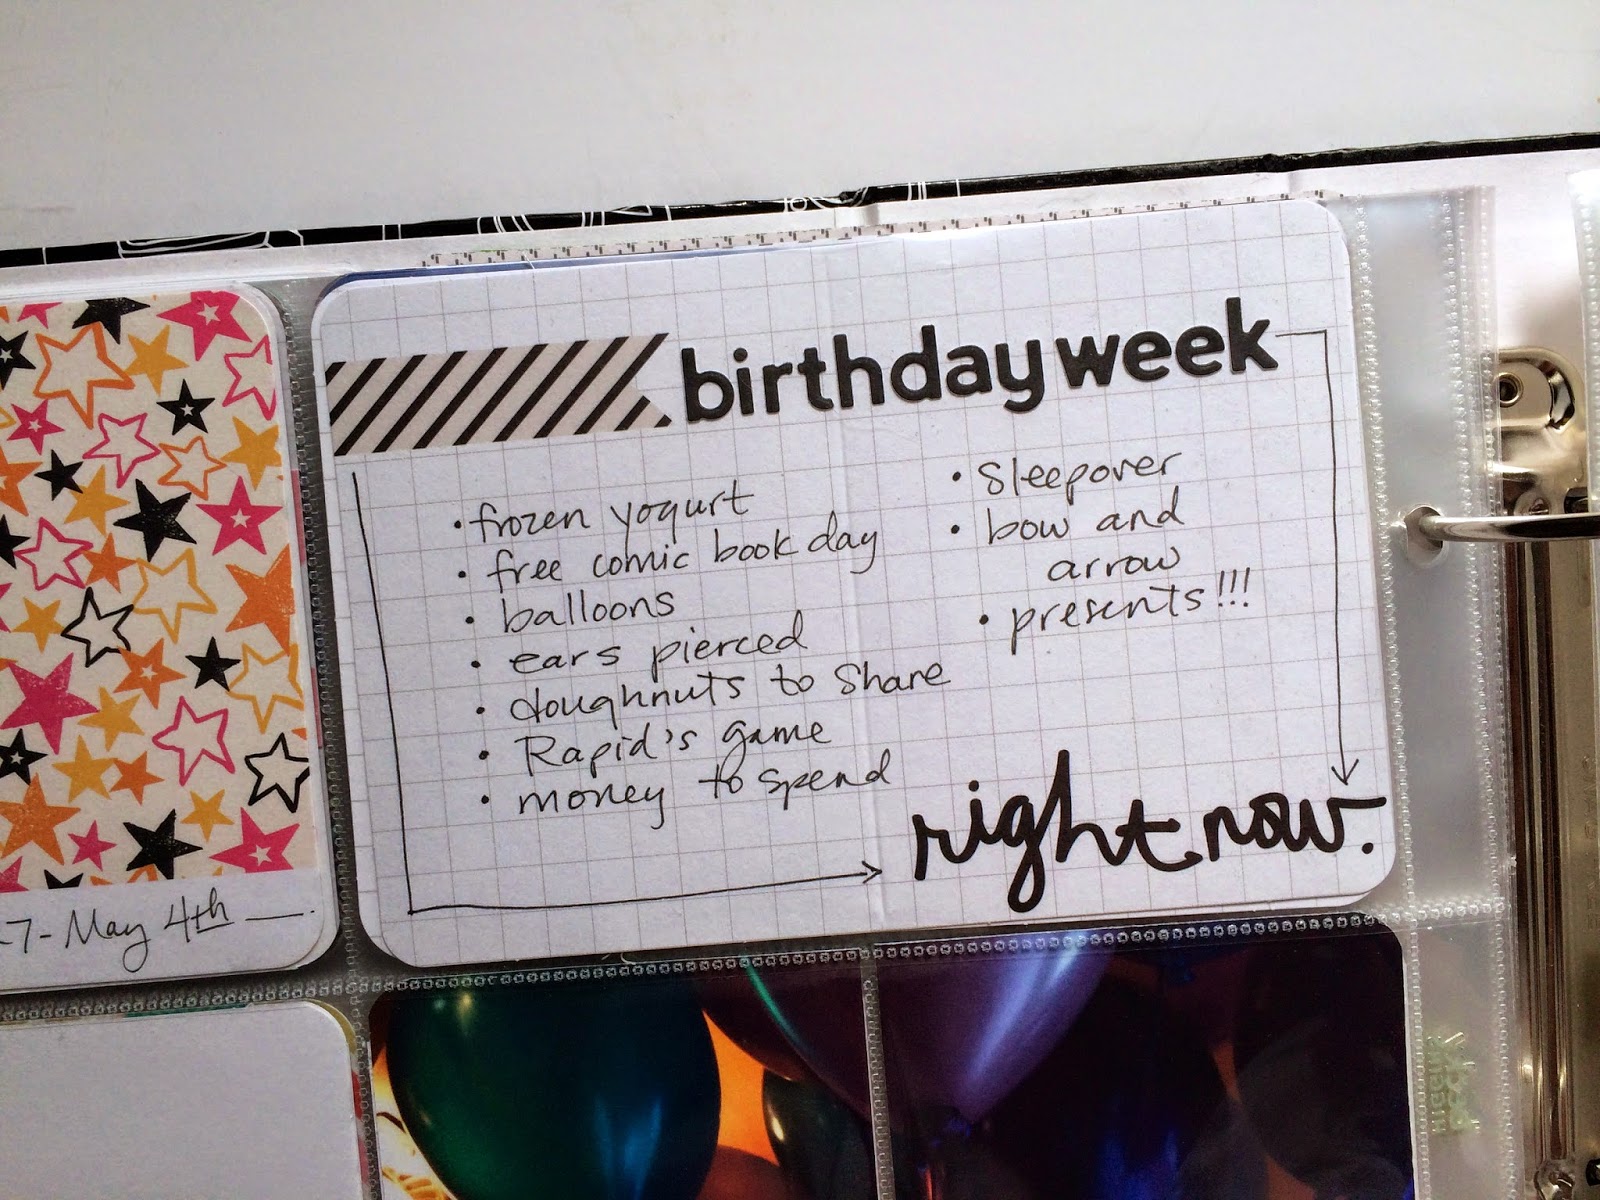 birthday week
• frozen yogurt
• free comic book day
• balloons
• ears pierced
• doughnuts to share
• Rapid's game
• money to spend
• Sleepover
• bow and
arrow
• presents!!!
right now.
-7- May 4th